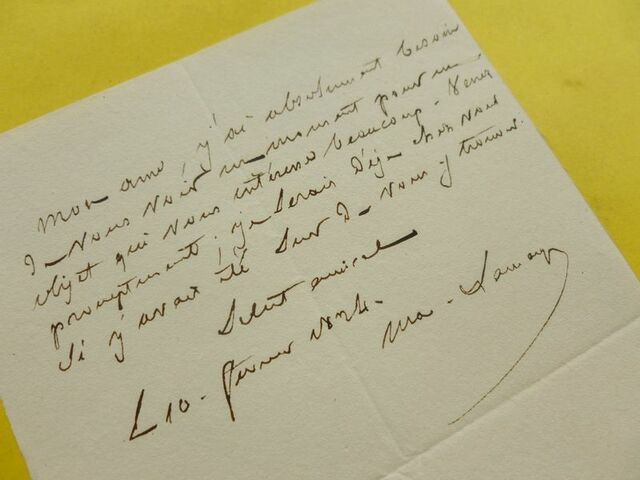 mon ami, j'ai absolument besoin
de vous voir un moment pour un
objet qui vous intéresse beaucoup. Venez
promptement, je serais déjà chez vous
si j'avais été sur de vous y trouver.
Salut amical
Le 10. février 1824.